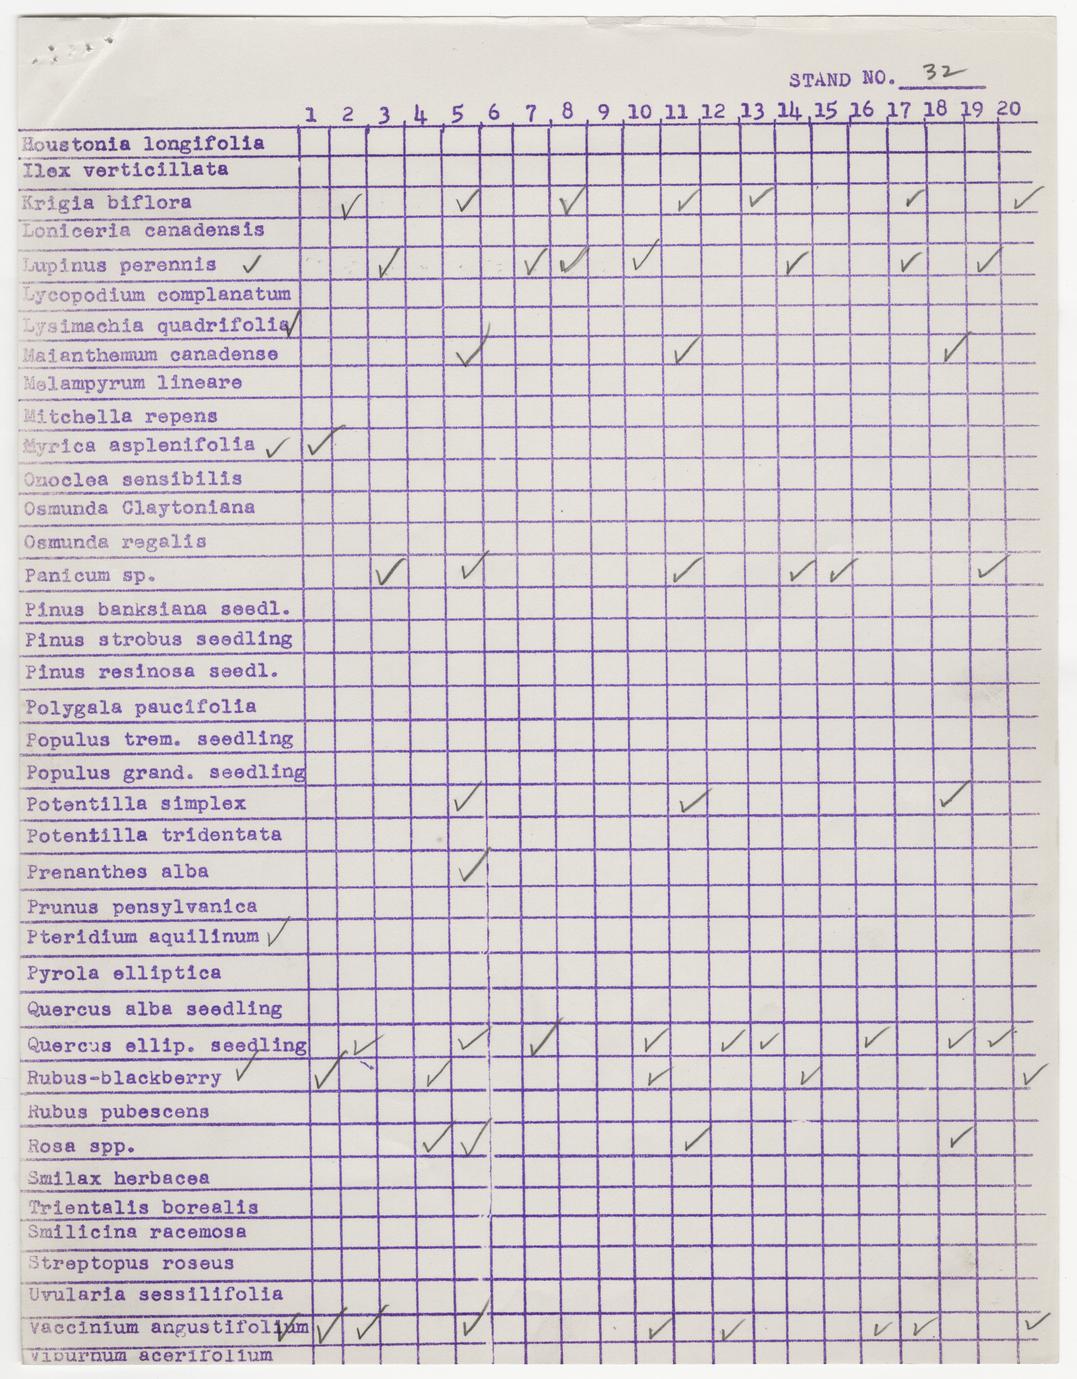 STAND NO. 32
1 2 3 4 5 6 7 8 9 10 11 12 13 14 15 16 17 18 19 20
Houstonia longifolia
Ilex verticillata
Krigia biflora ✓ ✓ ✓ ✓ ✓ ✓ ✓
Loniceria canadensis
Lupinus perennis ✓ ✓ ✓ ✓ ✓ ✓ ✓ ✓
Lycopodium complanatum
Lysimachia quadrifolia ✓
Maianthemum canadense ✓ ✓ ✓
Melampyrum lineare
Mitchella repens
Myrica asplenifolia ✓ ✓
Onoclea sensibilis
Osmunda Claytoniana
Osmunda regalis
Panicum sp. ✓ ✓ ✓ ✓ ✓ ✓
Pinus banksiana seedl.
Pinus strobus seedling
Pinus resinosa seedl.
Polygala paucifolia
Populus trem. seedling
Populus grand. seedling
Potentilla simplex ✓ ✓ ✓
Potentilla tridentata
Prenanthes alba ✓
Prunus pensylvanica
Pteridium aquilinum ✓
Pyrola elliptica
Quercus alba seedling
Quercus ellip. seedling ✓ ✓ ✓ ✓ ✓ ✓ ✓ ✓ ✓
Rubus-blackberry ✓ ✓ ✓ ✓ ✓ ✓
Rubus pubescens
Rosa spp. ✓ ✓ ✓ ✓
Smilax herbacea
Trientalis borealis
Smilicina racemosa
Streptopus roseus
Uvularia sessilifolia
Vaccinium angustifolium ✓ ✓ ✓ ✓ ✓ ✓ ✓ ✓ ✓
Viburnum acerifolium